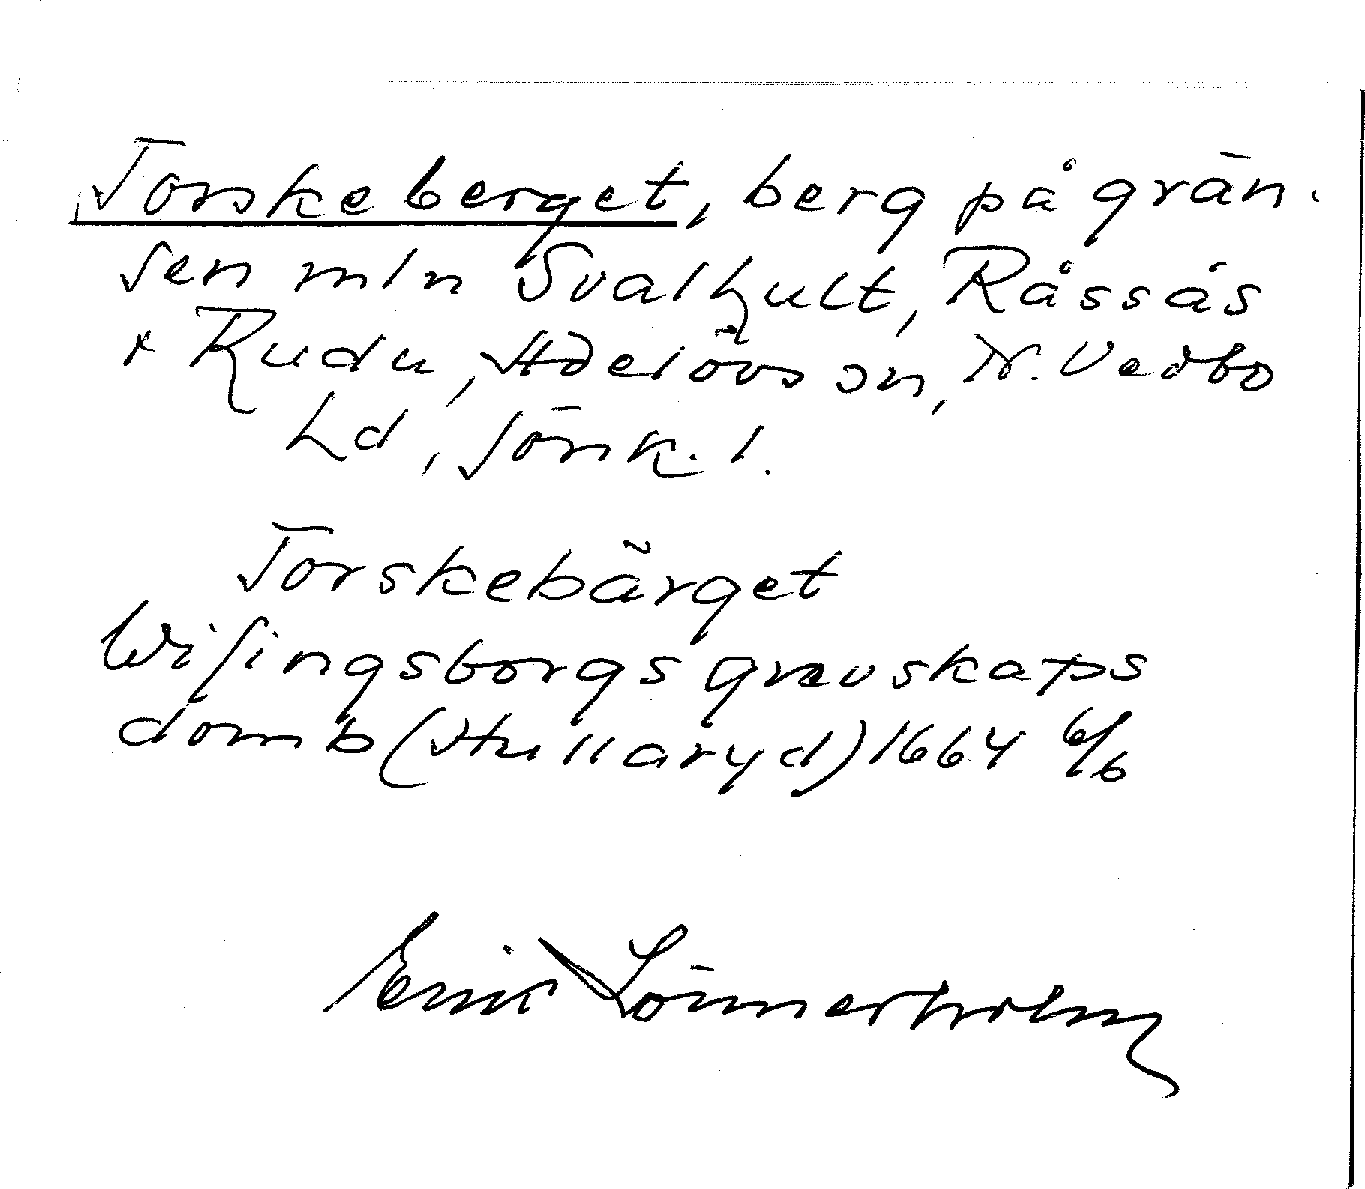 Torskeberget, berg på grän-
sen mln Svalhult, Råssås
+ Rudu, Adelövs sn, N. Vedbo
hd, Jönk. l.
Torskebärget
Wisingsborgs grevskaps
domb (Hullaryd) 1664 6/6
Erik Lönnerholm